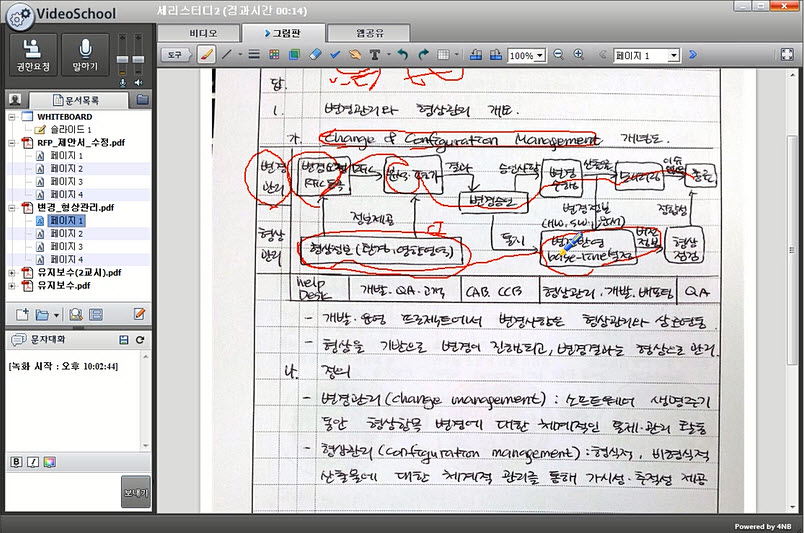 VideoSchool
세리스터디2 (경과시간 00:14)
비디오
그림판
웹공유
권한요청
말하기
도구
100%
페이지 1
문서목록
WHITEBOARD
슬라이드 1
RFP_제안서_수정.pdf
페이지 1
페이지 2
페이지 3
페이지 4
변경_형상관리.pdf
페이지 1
페이지 2
페이지 3
페이지 4
유지보수(2교시).pdf
유지보수.pdf
문자대화
[녹화 시작 : 오후 10:02:44]
B I
보내기
답.
1. 변경관리와 형상관리 개요.
가. Change & Configuration Management 개념도.
변경
관리
결과
변경승인
정보제공
CI
형상
관리
형상정보 (
통지
(HW, SW,
base-line설정
버전
정보
형상
점검
Help
Desk
개발·QA·고객
CAB, CCB
형상관리, 개발, 배포팀
QA
- 개발·운영 프로젝트에서 변경사항은 형상관리와 상호연동
- 형상을 기반으로 변경이 진행되고, 변경결과는 형상으로 관리.
나. 정의
- 변경관리(change management) : 소프트웨어 생명주기
동안 형상항목 변경에 대한 체계적인 통제·관리 활동
- 형상관리(configuration management) : 형식적, 비형식적
산출물에 대한 체계적 관리를 통해 가시성·추적성 제공
Powered by 4NB